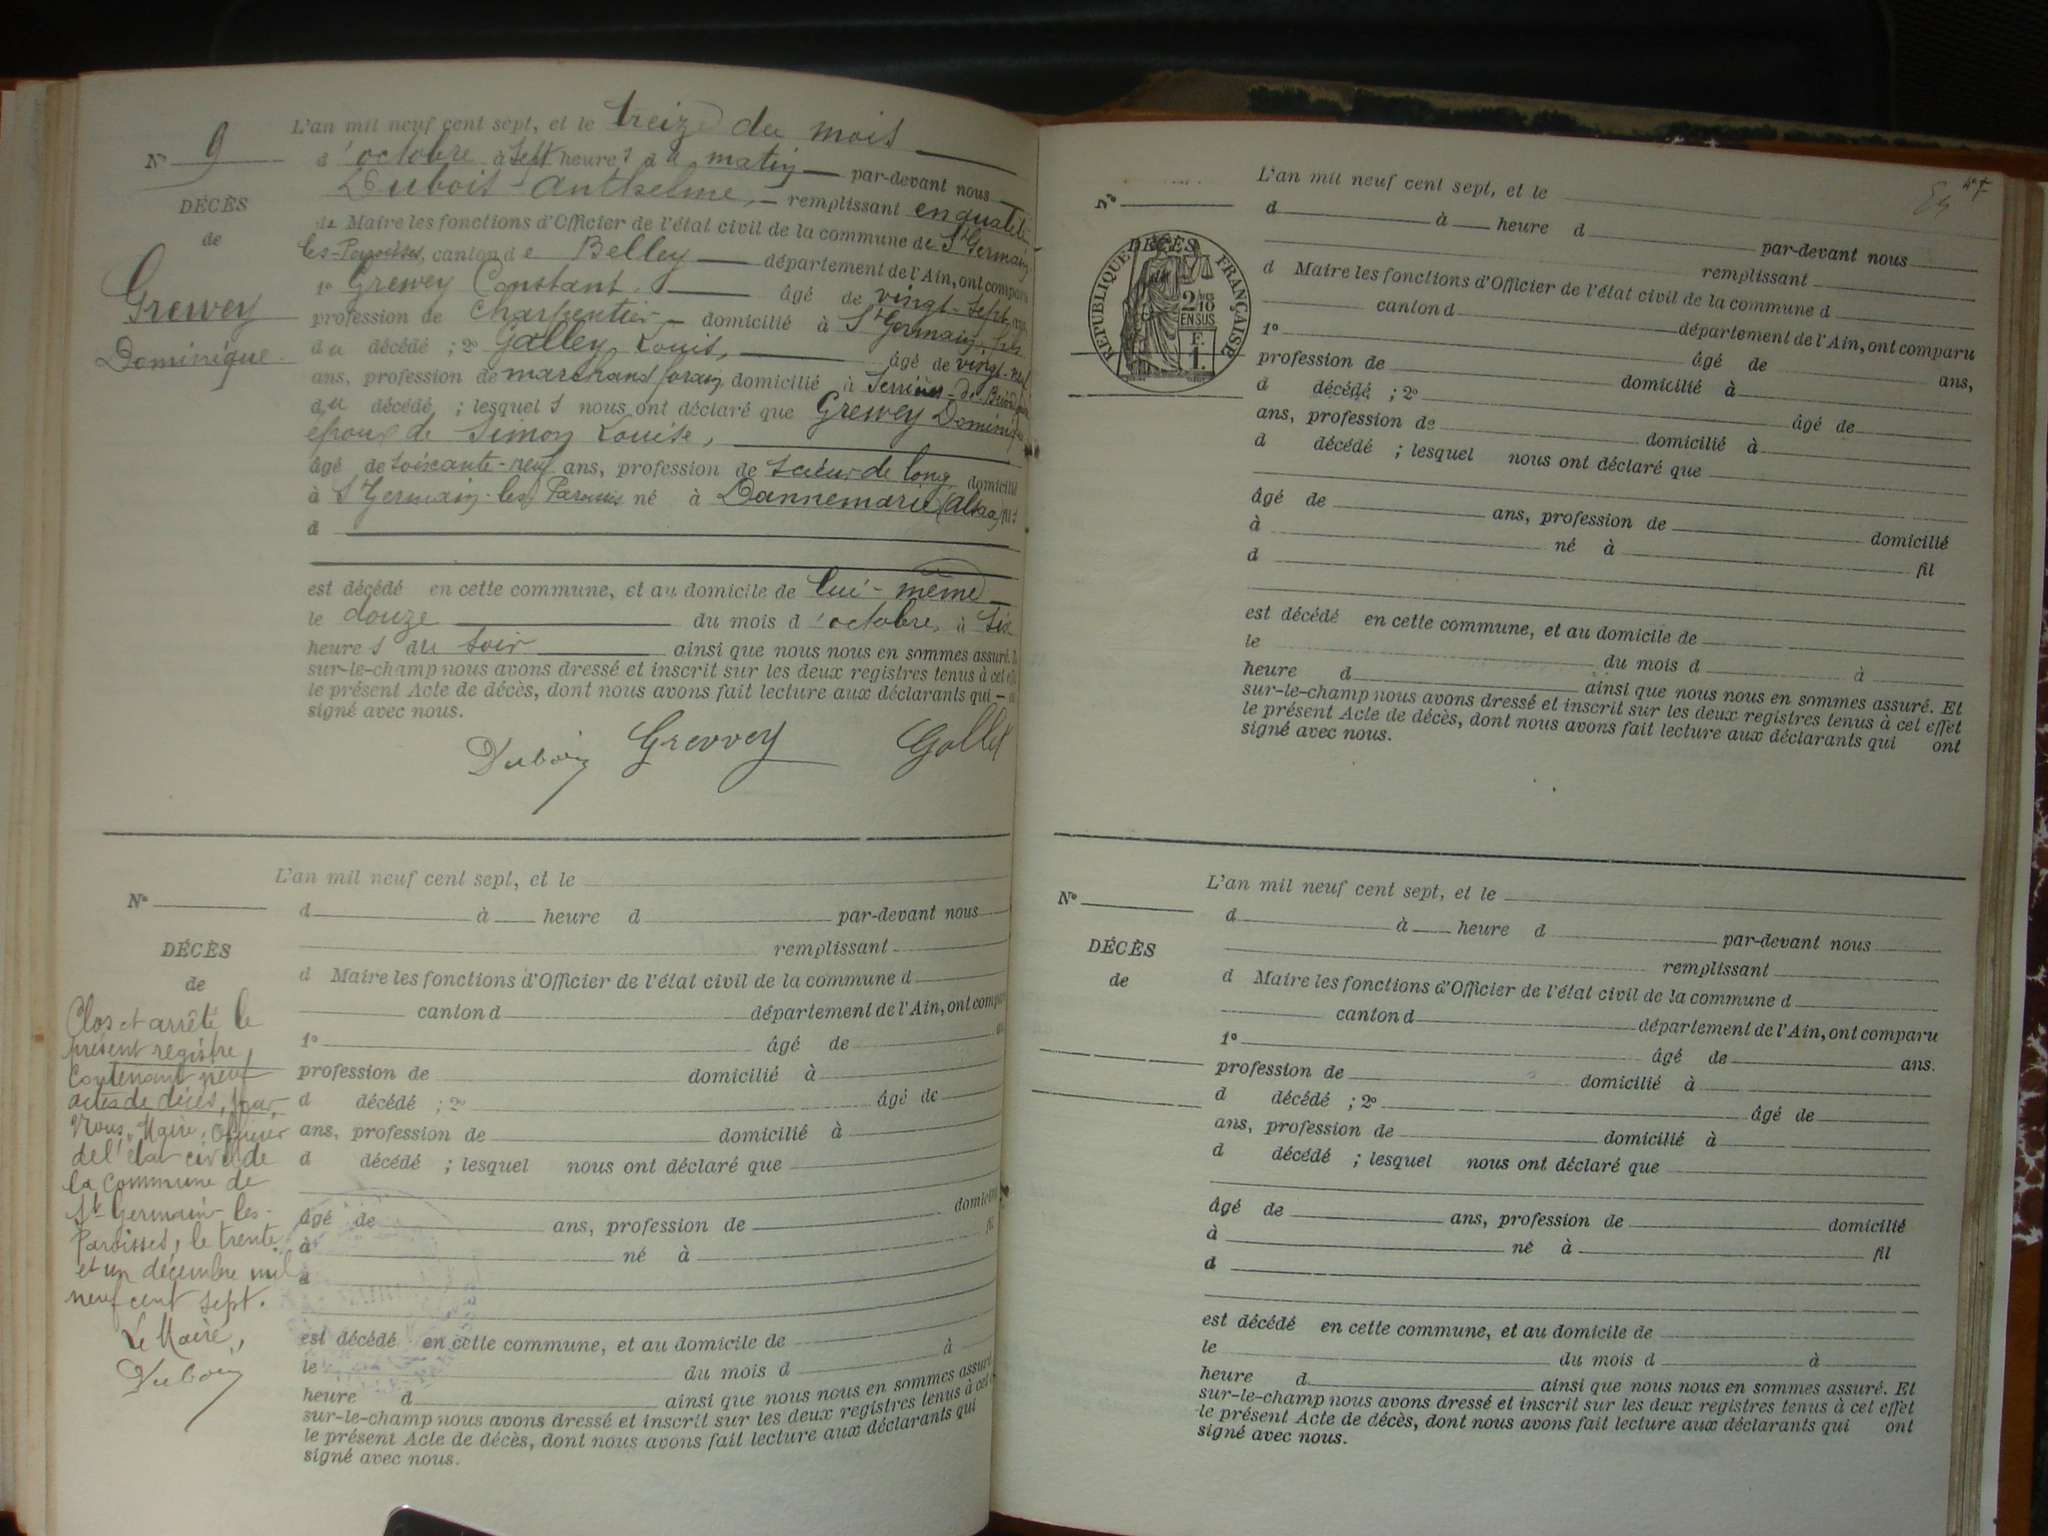 L'an mil neuf cent sept, et le treize du mois
N° 9
d'octobre à sept heures du matin par-devant nous
Dubois Anthelme, remplissant en qualité
DÉCÈS
de Maire les fonctions d'Officier de l'état civil de la commune de St Germain
de
les-Paroisses, canton de Belley département de l'Ain, ont comparu
Grewey
Dominique
1° Grewey Constant âgé de vingt-sept ans,
profession de charpentier domicilié à St Germain, fils
du décédé ; 2° Galley Louis, âgé de vingt-neuf
ans, profession de marchand forain domicilié à Serrières-de-Briord
du décédé ; lesquels nous ont déclaré que Grewey Dominique
époux de Simon Louise,
âgé de soixante-neuf ans, profession de scieur de long domicilié
à St Germain-les-Paroisses né à Dannemarie (Alsace) fils
d
est décédé en cette commune, et au domicile de lui-même
le douze du mois d'octobre, à six
heures du soir ainsi que nous nous en sommes assuré.
sur-le-champ nous avons dressé et inscrit sur les deux registres tenus à cet
le présent Acte de décès, dont nous avons fait lecture aux déclarants qui
signé avec nous.
Dubois Grevvey Gallet
L'an mil neuf cent sept, et le
N°
d à heure d par-devant nous
remplissant
DÉCÈS
de
d Maire les fonctions d'Officier de l'état civil de la commune d
canton d département de l'Ain, ont comparu
1° âgé de
profession de domicilié à
d décédé ; 2° âgé de
ans, profession de domicilié à
d décédé ; lesquel nous ont déclaré que
âgé de ans, profession de domicilié
à né à fil
d
est décédé en cette commune, et au domicile de
le du mois d à
heure d ainsi que nous nous en sommes assuré
sur-le-champ nous avons dressé et inscrit sur les deux registres tenus à cet
le présent Acte de décès, dont nous avons fait lecture aux déclarants qui
signé avec nous.
Clos et arrêté le
présent registre,
contenant neuf
actes de décès, par
Nous, Maire, Officier
de l'état civil de
la commune de
St Germain-les-
Paroisses, le trente
et un décembre mil
neuf cent sept.
Le Maire,
Dubois
L'an mil neuf cent sept, et le
N°
d à heure d par-devant nous
remplissant
RÉPUBLIQUE FRANÇAISE
DÉCÈS
2/10 EN SUS
F. 1.
d Maire les fonctions d'Officier de l'état civil de la commune d
canton d département de l'Ain, ont comparu
1° âgé de ans,
profession de domicilié à
d décédé ; 2° âgé de
ans, profession de domicilié à
d décédé ; lesquel nous ont déclaré que
âgé de ans, profession de domicilié
à né à fil
d
est décédé en cette commune, et au domicile de
le du mois d à
heure d ainsi que nous nous en sommes assuré. Et
sur-le-champ nous avons dressé et inscrit sur les deux registres tenus à cet effet
le présent Acte de décès, dont nous avons fait lecture aux déclarants qui ont
signé avec nous.
L'an mil neuf cent sept, et le
N°
d à heure d par-devant nous
remplissant
DÉCÈS
de
d Maire les fonctions d'Officier de l'état civil de la commune d
canton d département de l'Ain, ont comparu
1° âgé de ans.
profession de domicilié à
d décédé ; 2° âgé de
ans, profession de domicilié à
d décédé ; lesquel nous ont déclaré que
âgé de ans, profession de domicilié
à né à fil
d
est décédé en cette commune, et au domicile de
le du mois d à
heure d ainsi que nous nous en sommes assuré. Et
sur-le-champ nous avons dressé et inscrit sur les deux registres tenus à cet effet
le présent Acte de décès, dont nous avons fait lecture aux déclarants qui ont
signé avec nous.